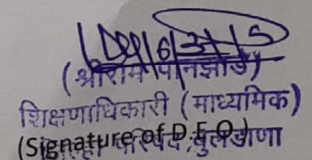 (श्रीराम पानझाडे)
शिक्षणाधिकारी (माध्यमिक)
(Signature of D.E.O.)
जिल्हा परिषद, बुलडाणा